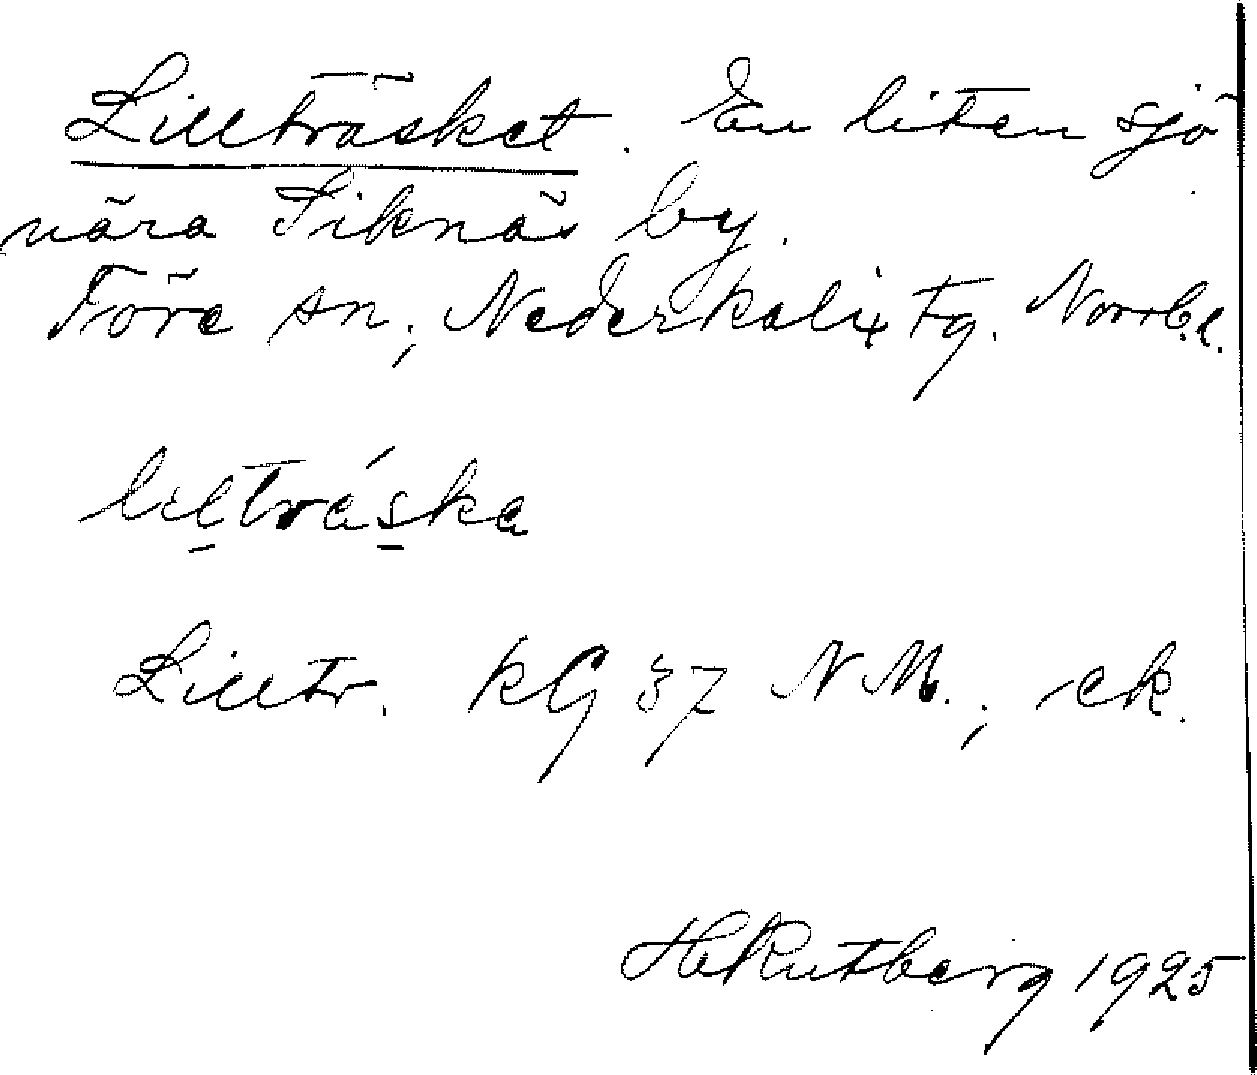 Lillträsket. En liten sjö
nära Siknäs by.
Töre sn, Nederkalix tg. Norrb.l.
liltráska
Lilltr. kG 37 NM., ek.
H Rutberg 1925